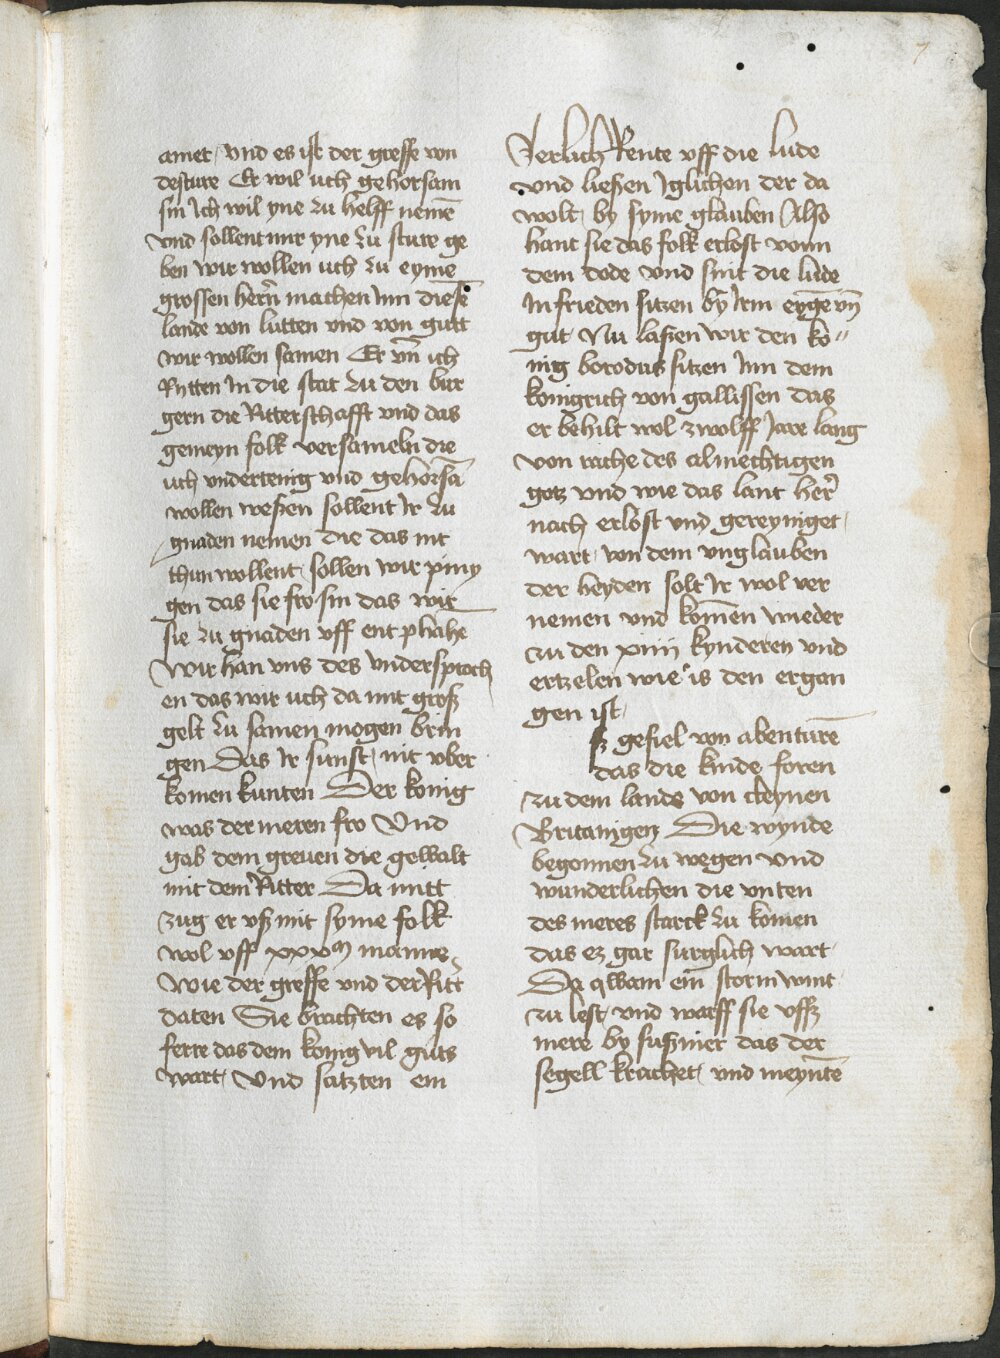 7
amet / vnd es ist der greffe von
desture Er wil uch gehorsam
sin Ich wil yne zu helff nemē
vnd sollent mir yne zu sture ge
ben wir wollen uch zu eyme
grossen hern̄ machen Inn diesē
lande von lutten vnd von gutt
wir wollen samen Er vn̄ ich
Rytten In die stat zu den bur
gern die Ritterschafft vnd das
gemeyn folk versameln die
uch vndertenig vnd gehorsā
wollen weßen sollent Ir zu
gnaden nemen die das nit
thun wollent / sollen wir piny
gen das sie fro sin das wir
sie zu gnaden vff entphahe
Wir han vns des vndersproch
en das wir uch da mit groß
gelt zu samen mogen brin
gen Das Ir sunst / nit vber
komen kunten Der konig
was der meren fro Vnd
gab dem greuen die gewalt
mit dem Ritter Da mitt
zug er vß mit syme folk
wol vff xxxm manne
Wie der greffe vnd der Ritt̄
daten Sie brachten es so
ferre das dem konig vil guts
wart / Vnd satzten ein
Jerlich Rente vff die lude
vnd ließen Iglichen der da
wolt / by syme glauben Also
hant sie das folk erlost vonn
dem dode vnd sint die lude
In frieden sitzen by Irm eygē vn̄
gut Nu laßen wir den ko"
nig borodus sitzen Inn dem
konigrich von gallissen das
er behilt wol zwolff Jare lang
von rache des almechtigen
gotz vnd wie das lant her̄
nach erlost vnd gereyniget /
wart / von dem vnglauben
der heyden solt Ir wol ver
nemen vnd komēn wieder
zu den xiiij kynderen vnd
ertzelen wie is den ergan
gen ist /
ß gefiel von abenturē
das die kinde foren
zu dem lande von cleynen
Britanigen Die wynde
begonnen zu wegen vnd
wunderlichen die vnten
des meres starck zu komen
das ez gar surglich wart
Da qwam ein storm wint
zu lest / vnd warff sie vffß
mere by sußmer das der
segell krachet / vnd meyntē